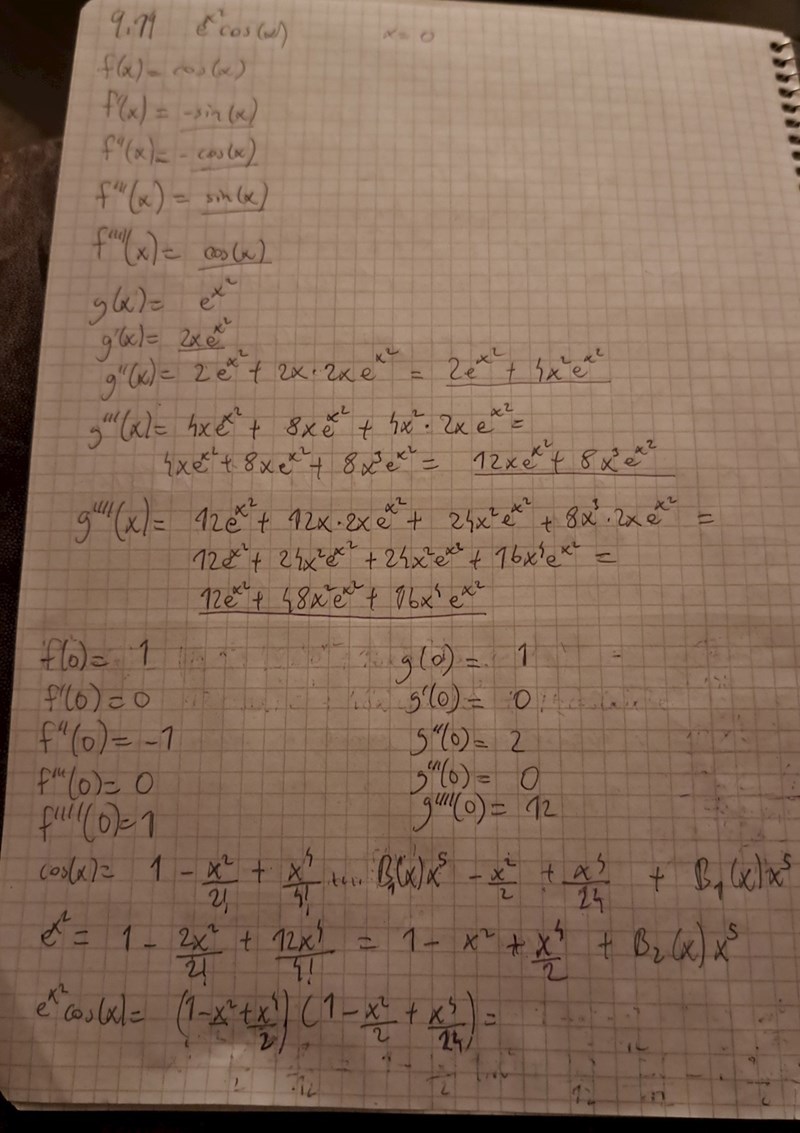 9.11 e^{x^2}cos(x) x=0
f(x)= cos(x)
f'(x)= -sin(x)
f''(x)= -cos(x)
f'''(x)= sin(x)
f''''(x)= cos(x)
g(x)= e^{x^2}
g'(x)= 2xe^{x^2}
g''(x)= 2e^{x^2} + 2x·2xe^{x^2} = 2e^{x^2} + 4x^2e^{x^2}
g'''(x)= 4xe^{x^2} + 8xe^{x^2} + 4x^2·2xe^{x^2} =
4xe^{x^2} + 8xe^{x^2} + 8x^3e^{x^2} = 12xe^{x^2} + 8x^3e^{x^2}
g''''(x)= 12e^{x^2} + 12x·2xe^{x^2} + 24x^2e^{x^2} + 8x^3·2xe^{x^2} =
12e^{x^2} + 24x^2e^{x^2} + 24x^2e^{x^2} + 16x^4e^{x^2} =
12e^{x^2} + 48x^2e^{x^2} + 16x^4e^{x^2}
f(0)= 1 g(0)= 1
f'(0)= 0 g'(0)= 0
f''(0)= -1 g''(0)= 2
f'''(0)= 0 g'''(0)= 0
f''''(0)= 1 g''''(0)= 12
cos(x)= 1 - x^2/2! + x^4/4! .... B_1(x)x^5 - x^2/2 + x^4/24 + B_1(x)x^5
e^{x^2} = 1 - 2x^2/2! + 12x^4/4! = 1 - x^2 + x^4/2 + B_2(x)x^5
e^{x^2}cos(x)= (1-x^2+x^4/2)(1-x^2/2+x^4/24)=